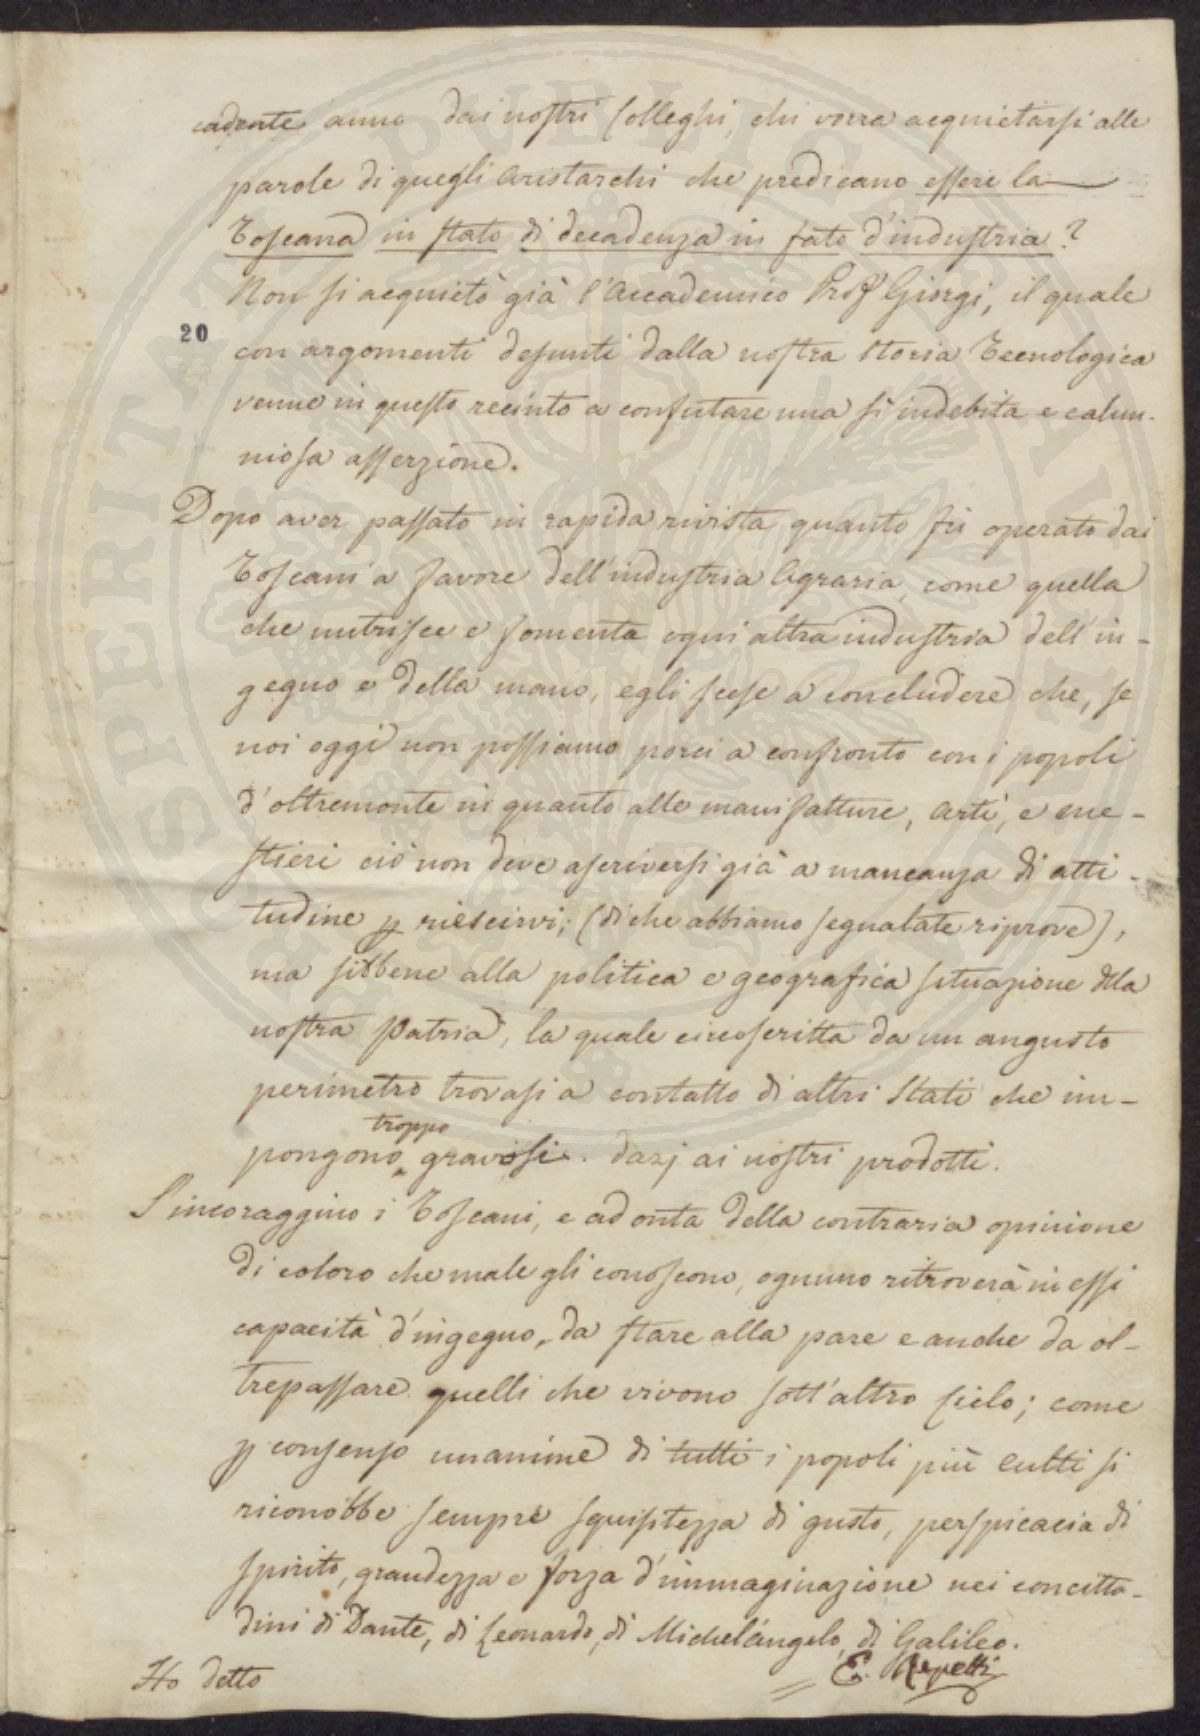 cadente anno dai nostri Colleghi, chi vorrà acquietarsi alle
parole di quegli Aristarchi che predicano essere la
Toscana in stato di decadenza in fato d'industria?
Non si acquietò già l'Accademico Prof Giorgi, il quale
20
con argomenti desunti dalla nostra Storia Tecnologica
venne in questo recinto a confutare una sì indebita e calun-
niosa asserzione.
Dopo aver passato in rapida rivista quanto fù operato dai
Toscani a favore dell'industria Agraria, come quella
che nutrisce e fomenta ogni altra industria dell'in-
gegno e della mano, egli scese a concludere che, se
noi oggi non possiamo porci a confronto con i popoli
d'oltremonte in quanto alle manifatture, arti, e me-
stieri ciò non deve ascriversi già a mancanza di atti-
tudine p riescirvi; (di che abbiamo segnalate riprove),
ma sibbene alla politica e geografica situazione dlla
nostra Patria, la quale circoscritta da un angusto
perimetro trovasi a contatto di altri Stati che im-
pongono troppo gravosi dazj ai nostri prodotti.
S'incoraggino i Toscani, e ad onta della contraria opinione
di coloro che male gli conoscono, ognuno ritroverà in essi
capacità d'ingegno, da stare alla pare e anche da ol-
trepassare quelli che vivono sott'altro Cielo; come
p consenso unanime di tutti i popoli più culti si
riconobbe sempre squisitezza di gusto, perspicacia di
spirito, grandezza e forza d'immaginazione nei concitta-
dini di Dante, di Leonardo, di Michelangelo, di Galileo.
Ho detto E. Repetti